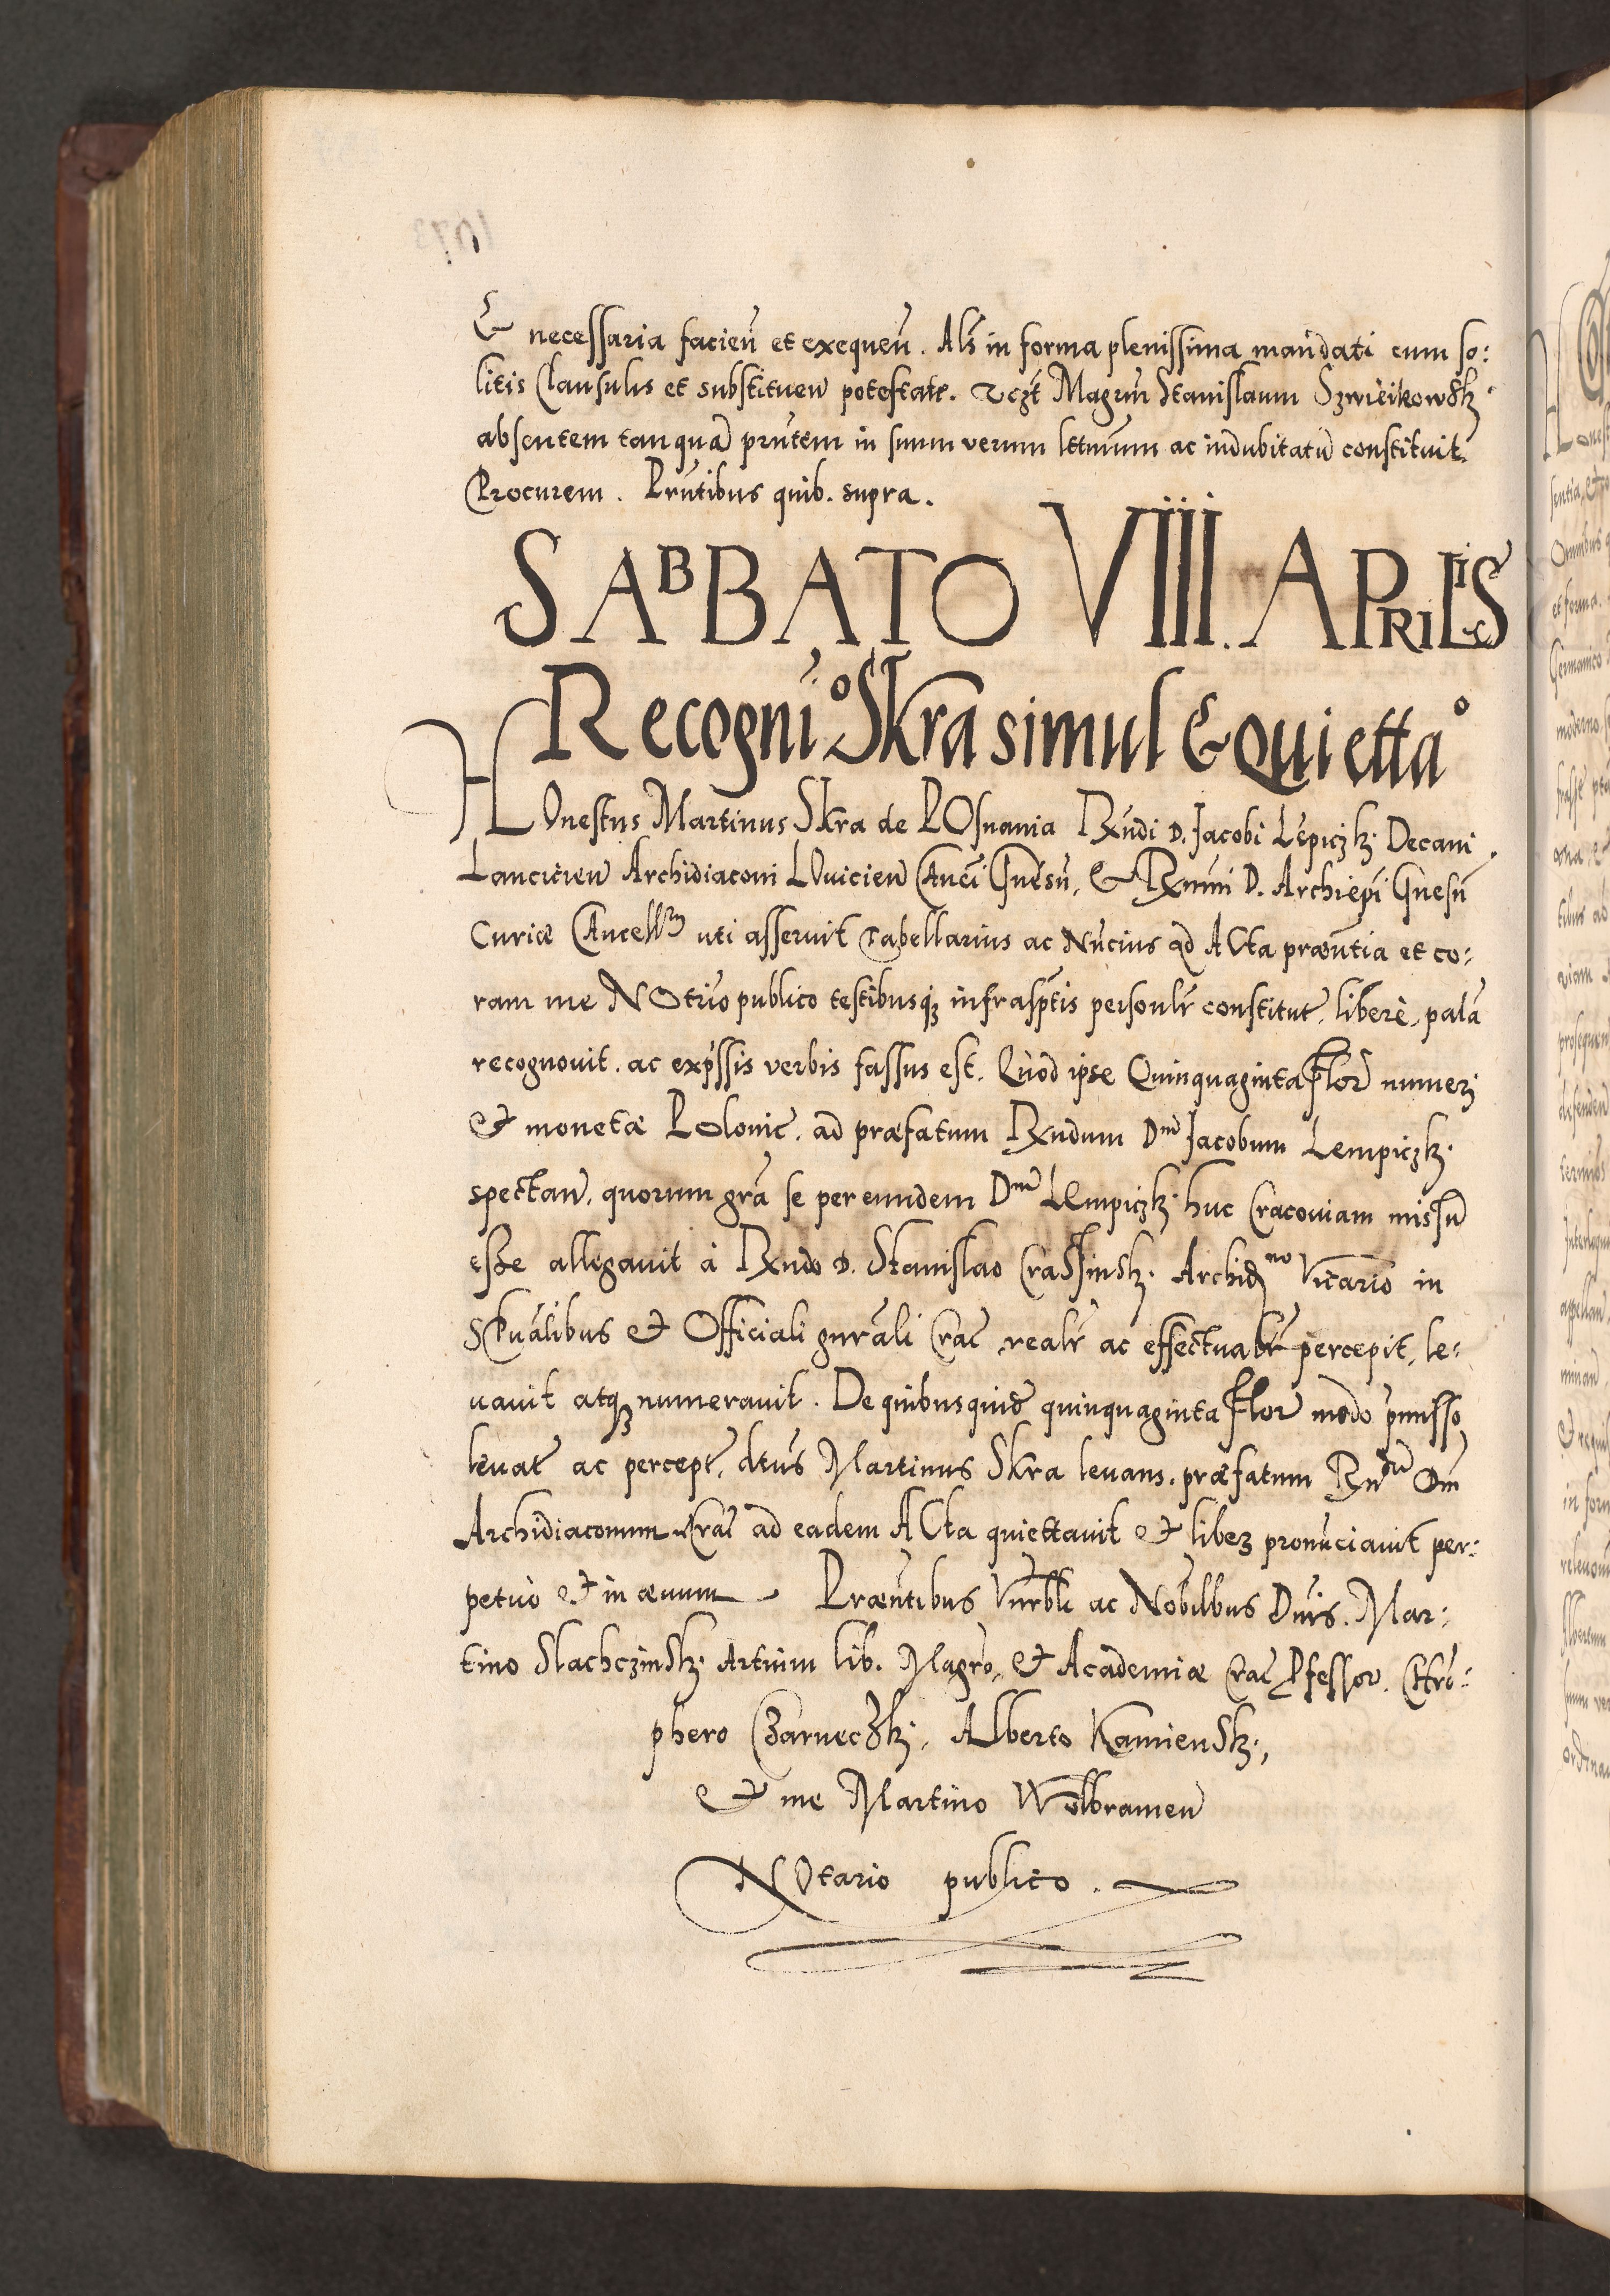 & necessaria facieñ et exequeñ. Als in forma plenissima mandati cum so:
litis Clausulis et substituen̄ potestate. Magrum Stanislaum
absentem tanquã prñtem in suum verum lttimum ac indubitatũ constituit
Procurem. Prñtibus quib. supra.
SABBATO VIII. APRILIS
Recogniᵒ Skra simul & Quiettaᵒ
HOnestus Martinus Skra de POsnania Rñdi D. Jacobi Lẽpiczk. Decani
Lancicien̄ Archidiaconi LOuicien̄ Canci Gnesñ, & Rmmi D. Archiepi Gnesñ
Curiæ Cancellr uti asseruit Tabellarius ac Nũcius ad ACta præñtia et co:
ram me NOtrio publico testibusq infrasptis personlr constitut, liberè, palã
recognouit. ac exp̃ssis verbis fassus est. Quod ipse Quinquaginta Flor numeri
& monetæ Polonic. ad præfatum Rndum Dnũ Jacobum Lempiczk.
spectan̄. quorum grã se per eundem Dnũ LEmpiczk. huc Cracouiam missũ
esse allegauit à Rndo D. Stanislao Crassinsk. Archidno Vicario in
SPuãlibus & Officiali gnrãli Crac̃ realr ac effectualr percepit, le:
uauit atq numerauit. De quibusquid quinquaginta Flor modo p̃misso
leuat ac percept, dtus Martinus Skra leuans. præfatum Rndũ Dm̃
Archidiaconum Crac̃ ad eadem ACta quiettauit & liberũ pronũciauit per:
petuò & in æuum. Præñtibus Vnrbli ac Nobilbus Dnis. Mar:
tino Slachczinsk. Artium lib. Magrõ, & Academiæ Crac̃ Pfessor. Chrõ:
phero Czarneczk., Alberto Kamiensk.,
& me Martino Wolbramen̄
NOtario publico.